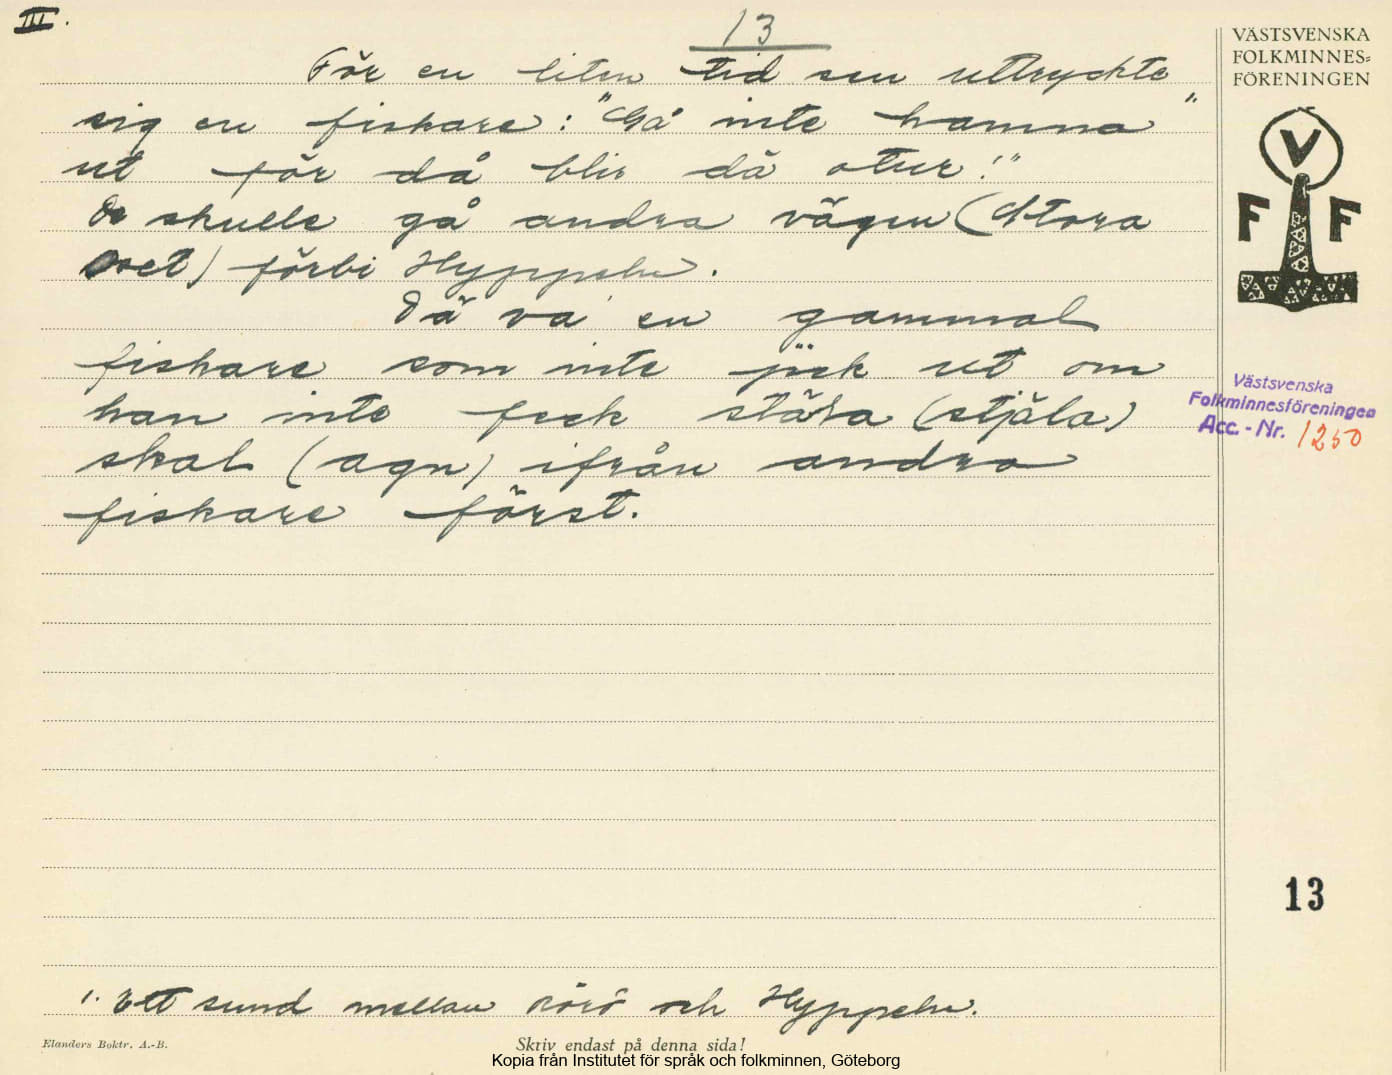 III.
13
För en liten tid sen uttryckte
sig en fiskare: "Gå inte hamna"
ut för då blir dä otur!"
De skulle gå andra vägen (Stora
oset) förbi Hyppeln.
Dä va en gammal
fiskare som inte jick ut om
han inte feck stäla (stjäla)
skal (agn) ifrån andra
fiskare först.
1. Ett sund mellan Rörö och Hyppeln.
Elanders Boktr. A.-B.
Skriv endast på denna sida!
Kopia från Institutet för språk och folkminnen, Göteborg
VÄSTSVENSKA
FOLKMINNES=
FÖRENINGEN
V
F F
Västsvenska
Folkminnesföreningen
Acc.-Nr. 1250
13